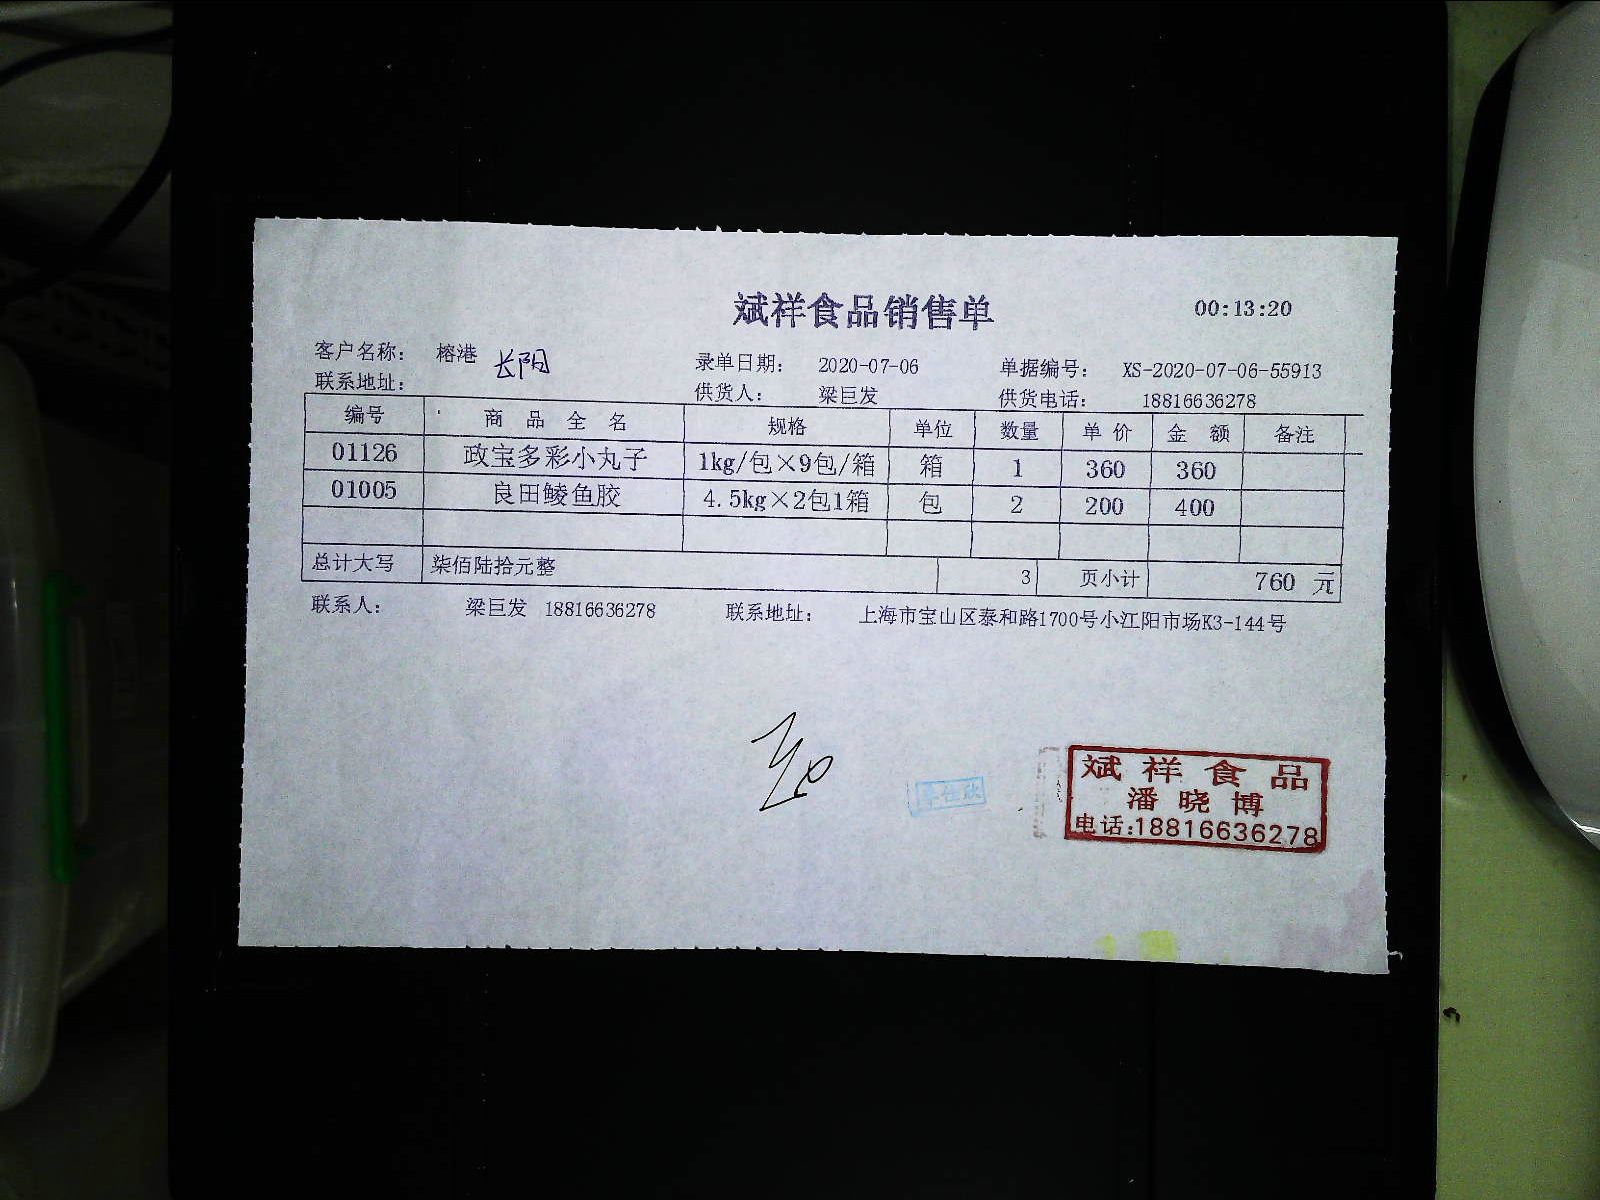 斌祥食品销售单 00:13:20
客户名称： 榕港 长阳 录单日期： 2020-07-06 单据编号： XS-2020-07-06-55913
联系地址： 供货人： 梁巨发 供货电话： 18816636278
编号 商品全名 规格 单位 数量 单价 金额 备注
01126 政宝多彩小丸子 1kg/包×9包/箱 箱 1 360 360
01005 良田鲮鱼胶 4.5kg×2包1箱 包 2 200 400
总计大写 柒佰陆拾元整 3 页小计 760 元
联系人： 梁巨发 18816636278 联系地址： 上海市宝山区泰和路1700号小江阳市场K3-144号
斌祥食品
潘晓博
电话:18816636278